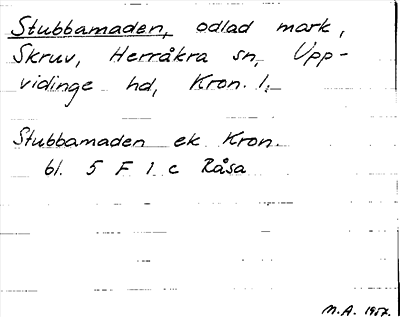 Stubbamaden, odlad mark,
Skruv, Herråkra sn, Upp-
vidinge hd, Kron. l.
Stubbamaden ek Kron.
bl. 5 F 1 c Råsa
M.A. 1957.